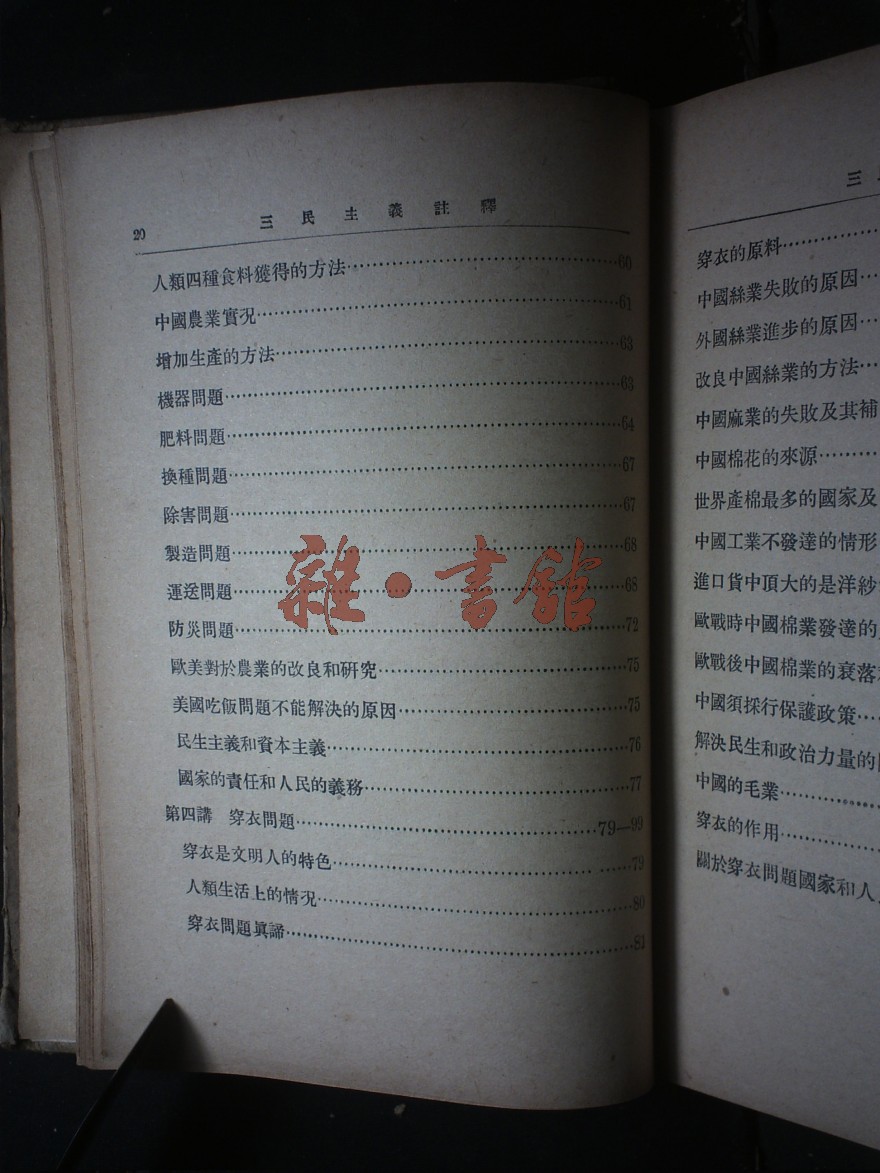 20 三民主義註釋
人類四種食料獲得的方法…60
中國農業實況…61
增加生產的方法…63
機器問題…63
肥料問題…64
換種問題…67
除害問題…67
製造問題…68
運送問題…68
防災問題…72
歐美對於農業的改良和研究…75
美國吃飯問題不能解決的原因…75
民生主義和資本主義…76
國家的責任和人民的義務…77
第四講 穿衣問題…79—99
穿衣是文明人的特色…79
人類生活上的情況…80
穿衣問題眞諦…81
雜·書館
三
穿衣的原料…
中國絲業失敗的原因…
外國絲業進步的原因…
改良中國絲業的方法…
中國麻業的失敗及其補
中國棉花的來源…
世界產棉最多的國家及
中國工業不發達的情形
進口貨中頂大的是洋紗
歐戰時中國棉業發達的
歐戰後中國棉業的衰落
中國須採行保護政策…
解決民生和政治力量的
中國的毛業…
穿衣的作用…
關於穿衣問題國家和人